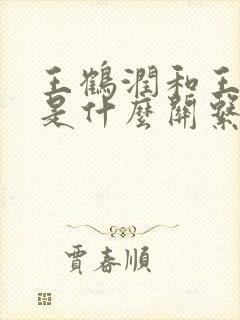 王鶴潤和王
是什麼關繫
賈春順